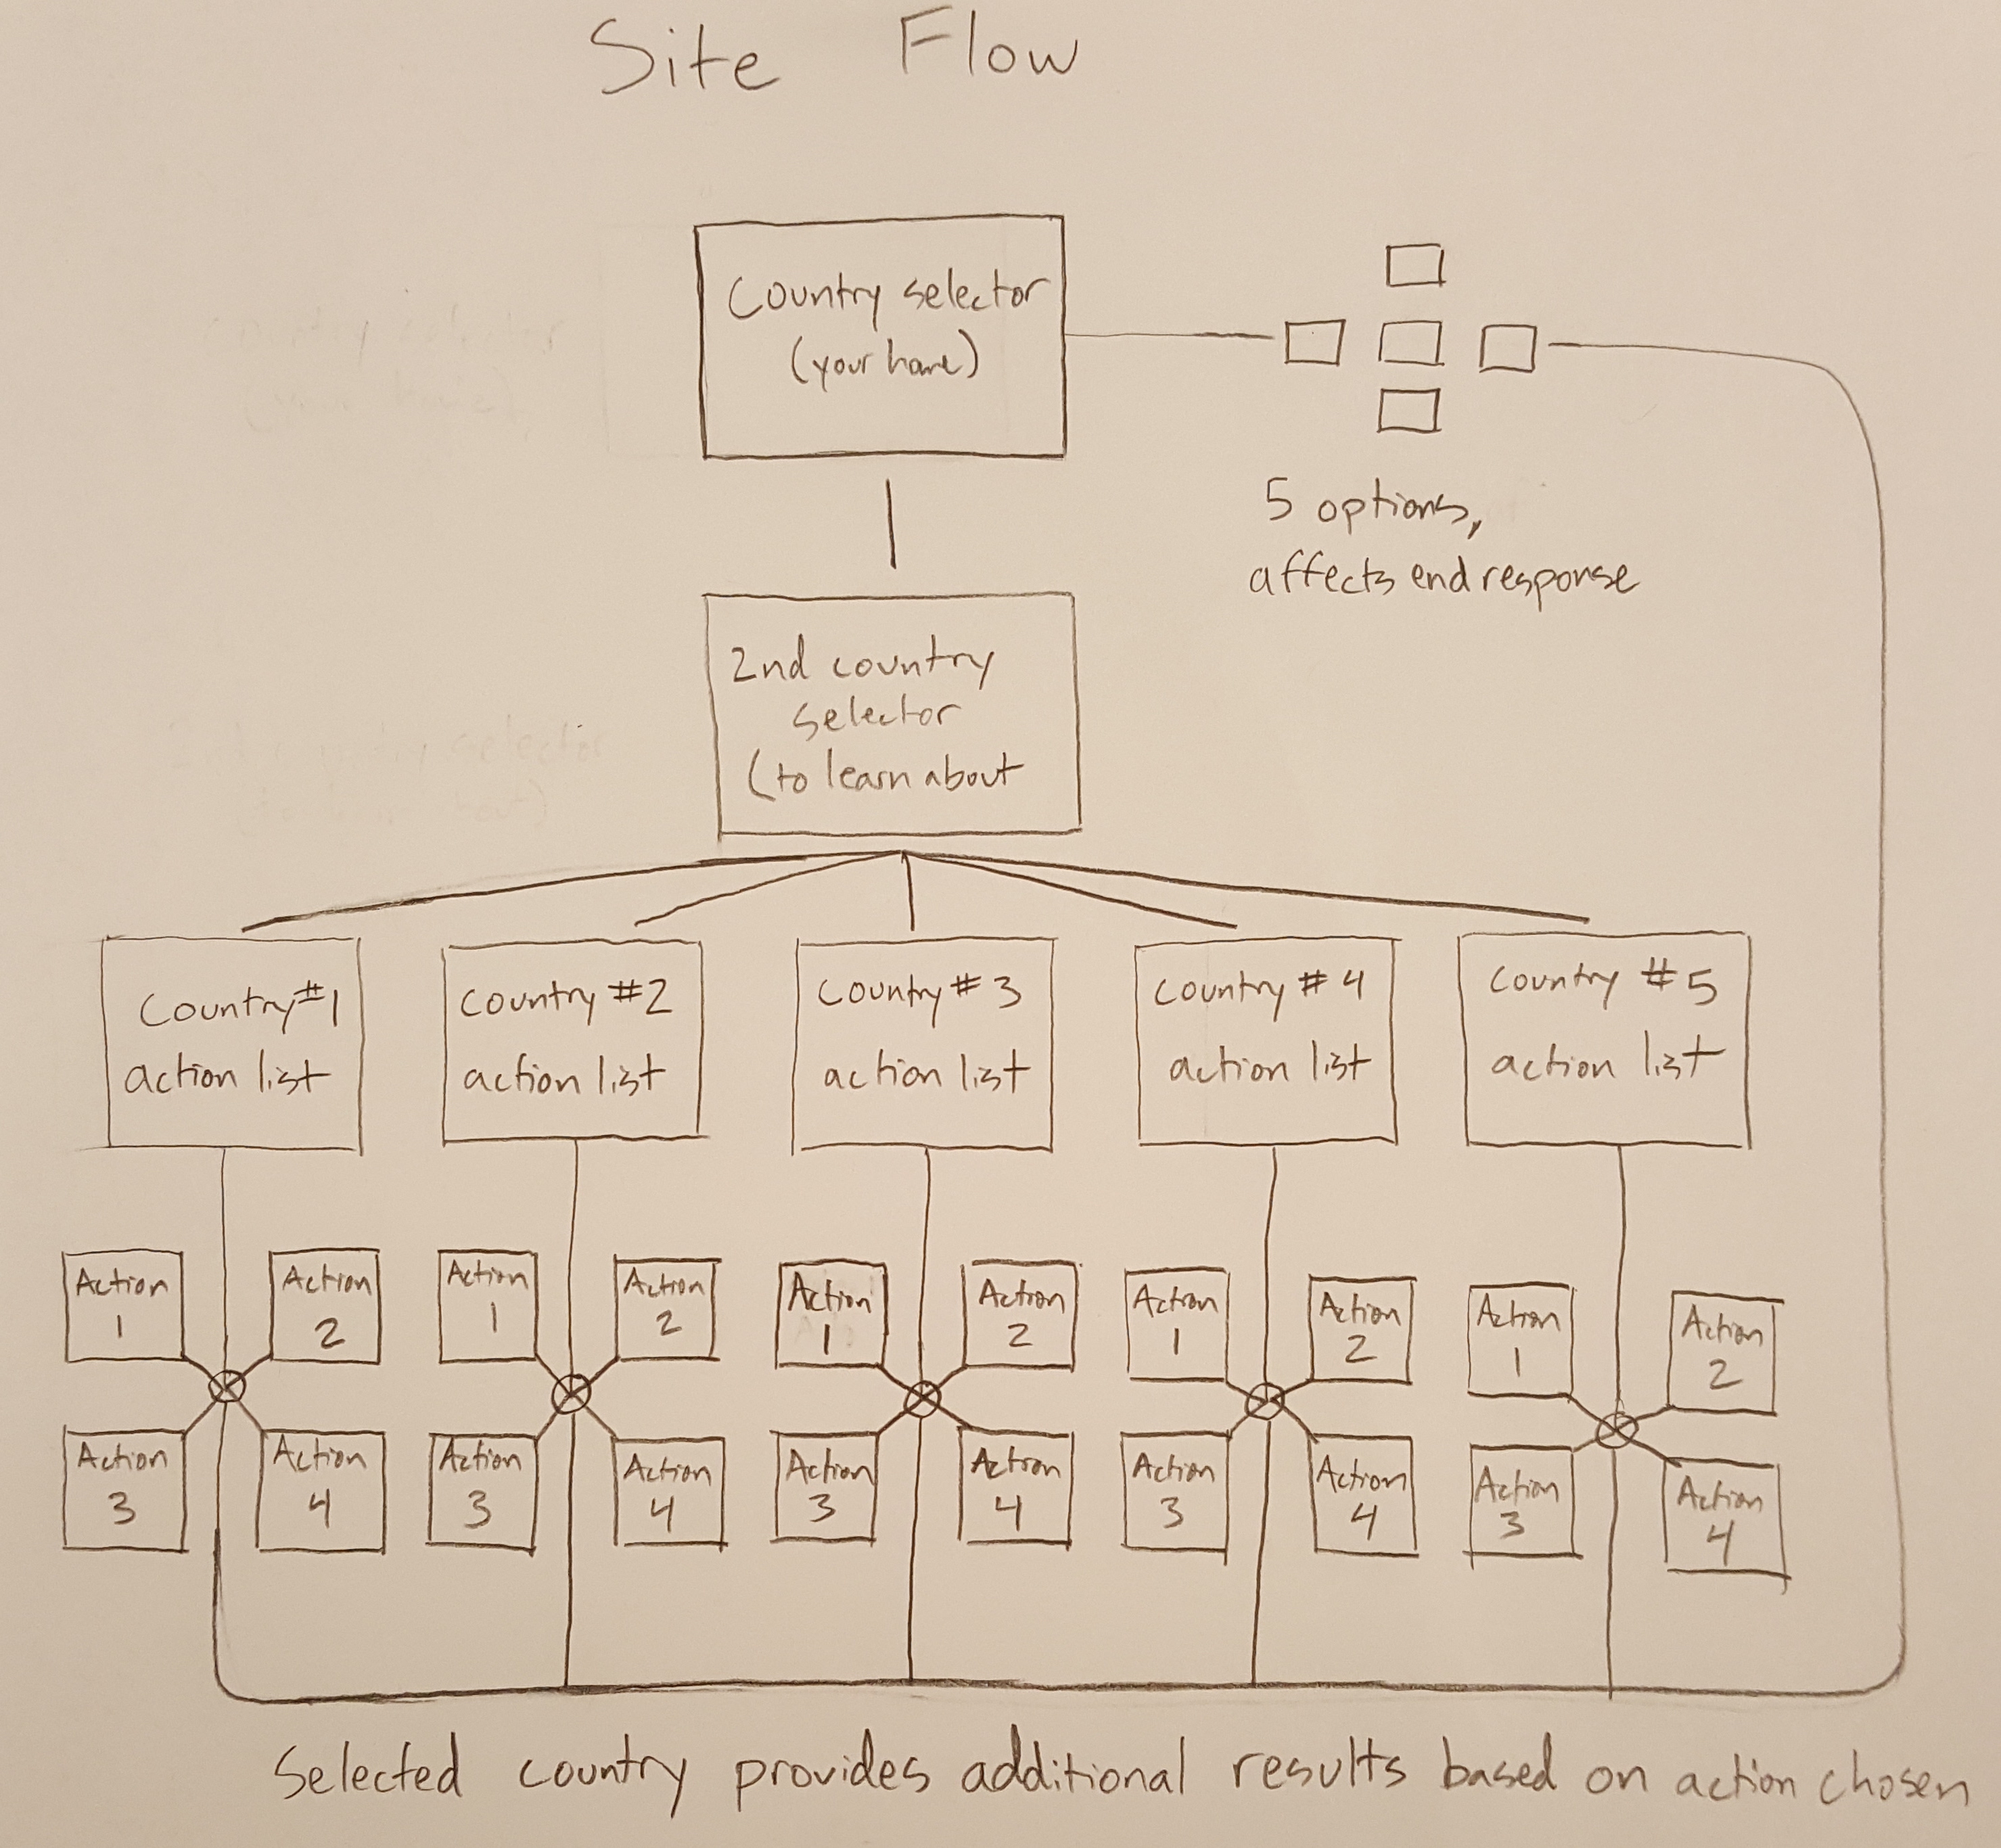 Site Flow
Country selector
(your home)
5 options,
affects end response
2nd country
selector
(to learn about
Country #1
action list
country #2
action list
country # 3
action list
country # 4
action list
country #5
action list
Action
1
Action
2
Action
3
Action
4
Action
1
Action
2
Action
3
Action
4
Action
1
Action
2
Action
3
Action
4
Action
1
Action
2
Action
3
Action
4
Action
1
Action
2
Action
3
Action
4
Selected country provides additional results based on action chosen